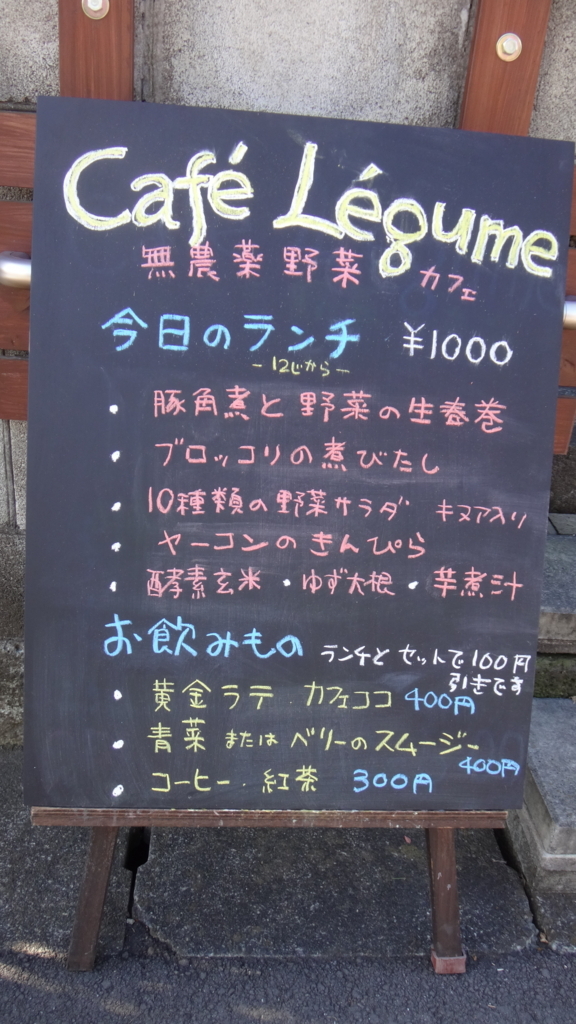 Café Légume
無農薬野菜 カフェ
今日のランチ ¥1000
-12じから-
・ 豚角煮と野菜の生春巻
・ ブロッコリの煮びたし
・ 10種類の野菜サラダ キヌア入り
・ ヤーコンのきんぴら
・ 酵素玄米・ゆず大根・芋煮汁
お飲みもの ランチとセットで100円
引きです
・ 黄金ラテ.カフェココ 400円
・ 青菜またはベリーのスムージー
400円
・ コーヒー.紅茶 300円